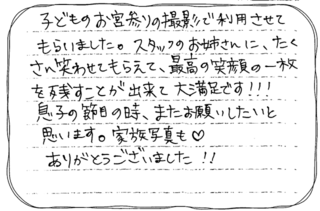 子どものお宮参りの撮影で利用させて
もらいました。スタッフのお姉さんに、たく
さん笑わせてもらえて、最高の笑顔の一枚
を残すことが出来て大満足です!!!
息子の節目の時、またお願いしたいと
思います。家族写真も♡
ありがとうございました!!